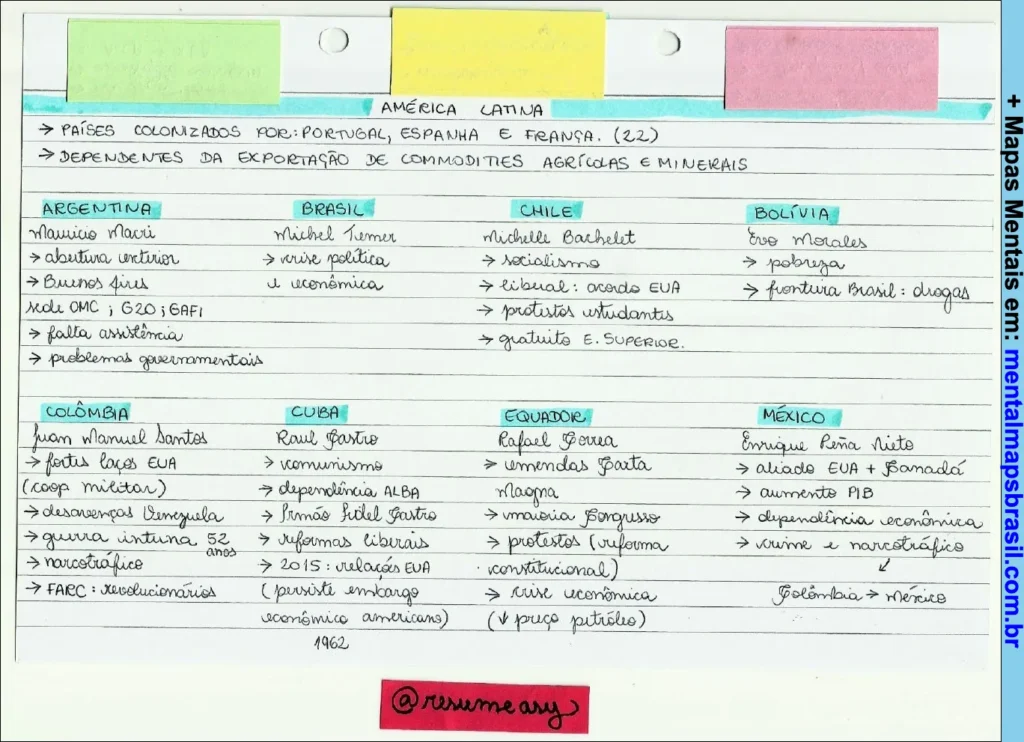 AMÉRICA LATINA
→ PAÍSES COLONIZADOS POR: PORTUGAL, ESPANHA E FRANÇA. (22)
→ DEPENDENTES DA EXPORTAÇÃO DE COMMODITIES AGRÍCOLAS E MINERAIS
ARGENTINA
Mauricio Macri
→ abertura exterior
→ Buenos Aires
sede OMC ; G20 ; GAFI
→ falta assistência
→ problemas governamentais
BRASIL
Michel Temer
→ crise política
e econômica
CHILE
Michelle Bachelet
→ socialismo
→ liberal: acordo EUA
→ protestos estudantes
→ gratuito E. SUPERIOR.
BOLÍVIA
Evo Morales
→ pobreza
→ fronteira Brasil: drogas
COLÔMBIA
Juan Manuel Santos
→ fortes laços EUA
(coop militar)
→ desavenças Venezuela
→ guerra interna 52
anos
→ narcotráfico
→ FARC: revolucionários
CUBA
Raul Castro
→ comunismo
→ dependência ALBA
→ Irmão Fidel Castro
→ reformas liberais
→ 2015: relações EUA
(persiste embargo
econômico americano)
1962
EQUADOR
Rafael Correa
→ emendas Carta
Magna
→ maioria Congresso
→ protestos (reforma
constitucional)
→ crise econômica
(↓ preço petróleo)
MÉXICO
Enrique Peña Nieto
→ aliado EUA + Canadá
→ aumento PIB
→ dependência econômica
→ crime e narcotráfico
↙
Colômbia → México
@resumeasy
+ Mapas Mentais em: mentalmapsbrasil.com.br